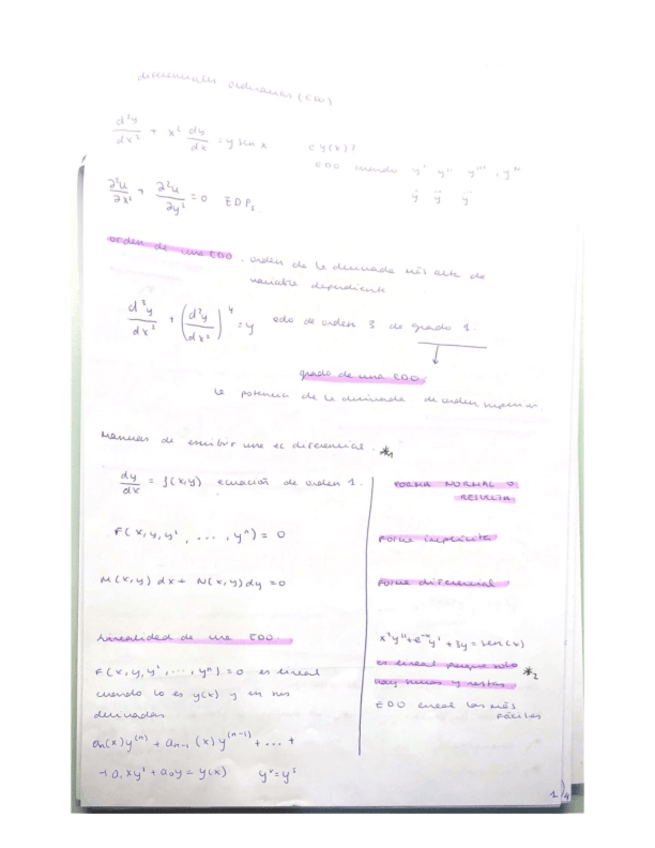 diferenciales ordinarias (EDO)
d²y/dx² + x² dy/dx = y sen x ¿ y(x)?
EDO cuando y' y'' y''' , yⁱᵛ
ẏ ÿ
∂²u/∂x² + ∂²u/∂y² = 0 EDPs.
orden de una EDO. orden de la derivada más alta de
variable dependiente
d³y/dx³ + (d²y/dx²)⁴ = y edo de orden 3 de grado 1.
grado de una EDO.
la potencia de la derivada de orden superior.
Maneras de escribir una ec diferencial. *1
dy/dx = f(x,y) ecuación de orden 1.
FORMA NORMAL O
RESUELTA
F(x,y,y', ..., yⁿ) = 0
Forma implícita
M(x,y) dx + N(x,y) dy = 0
Forma diferencial
Linealidad de una EDO.
F(x,y,y', ..., yⁿ) = 0 es lineal
cuando lo es y(x) y en sus
derivadas
aₙ(x)y⁽ⁿ⁾ + aₙ₋₁(x)y⁽ⁿ⁻¹⁾ + ... +
+ a₁xy' + a₀y = y(x)
x²y'' + e⁻ˣy' + 3y = sen(x)
es lineal porque solo
hay sumas y restas *2
EDO lineal las más
fáciles
1/4